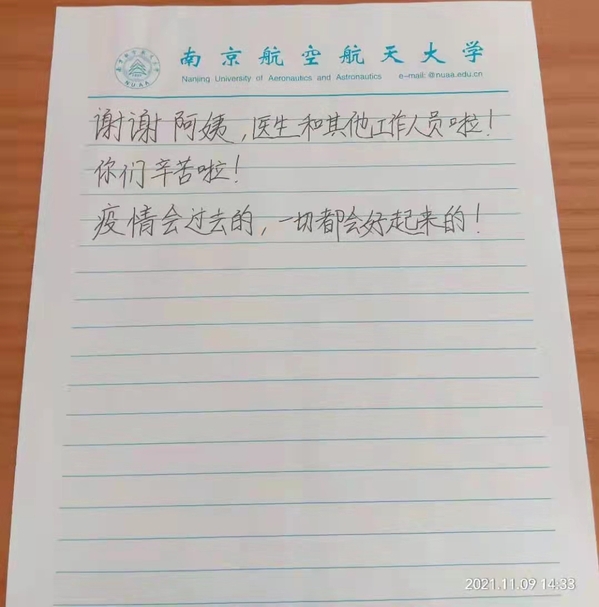 南京航空航天大学
Nanjing University of Aeronautics and Astronautics e-mail: @nuaa.edu.cn
NUAA
谢谢阿姨,医生和其他工作人员啦!
你们辛苦啦!
疫情会过去的,一切都会好起来的!
2021.11.09 14:33